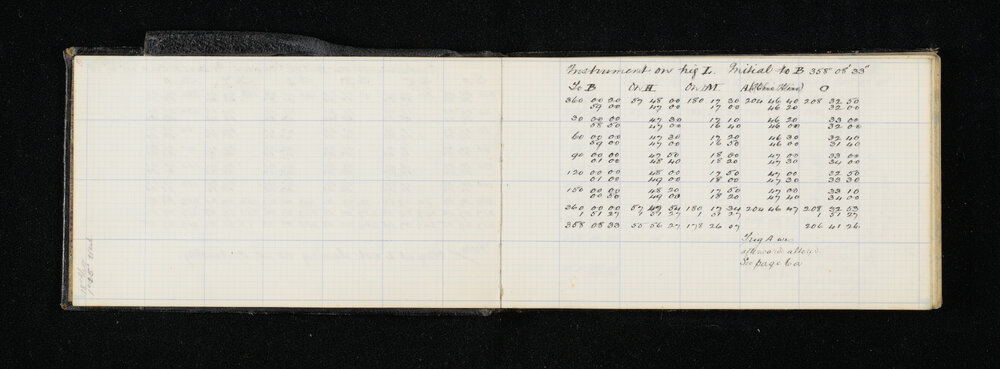 Instrument on trig L. Initial to B 358° 08' 33"
To B On H On M A (Stone Stand) O
360 00 20 57 48 00 180 17 30 204 46 40 208 32 50
59 00 47 00 17 00 46 20 32 00
30 00 00 47 30 17 10 46 20 33 00
58 50 47 00 16 40 46 00 32 00
60 00 00 47 30 17 20 46 30 32 40
59 00 47 00 16 50 46 00 31 40
90 00 00 47 50 18 00 47 00 33 00
01 00 48 40 18 20 47 30 34 00
120 00 00 48 00 17 50 47 00 32 50
01 00 49 00 18 00 47 30 33 30
150 00 00 48 20 17 50 47 00 33 10
00 50 49 00 18 20 47 40 34 00
360 00 00 57 47 54 180 17 34 204 46 47 208 32 53
1 51 27 1 51 27 1 51 27 1 51 27
358 08 33 55 56 27 178 26 07 206 41 26
Trig A was
afterwards altered
See page 6a